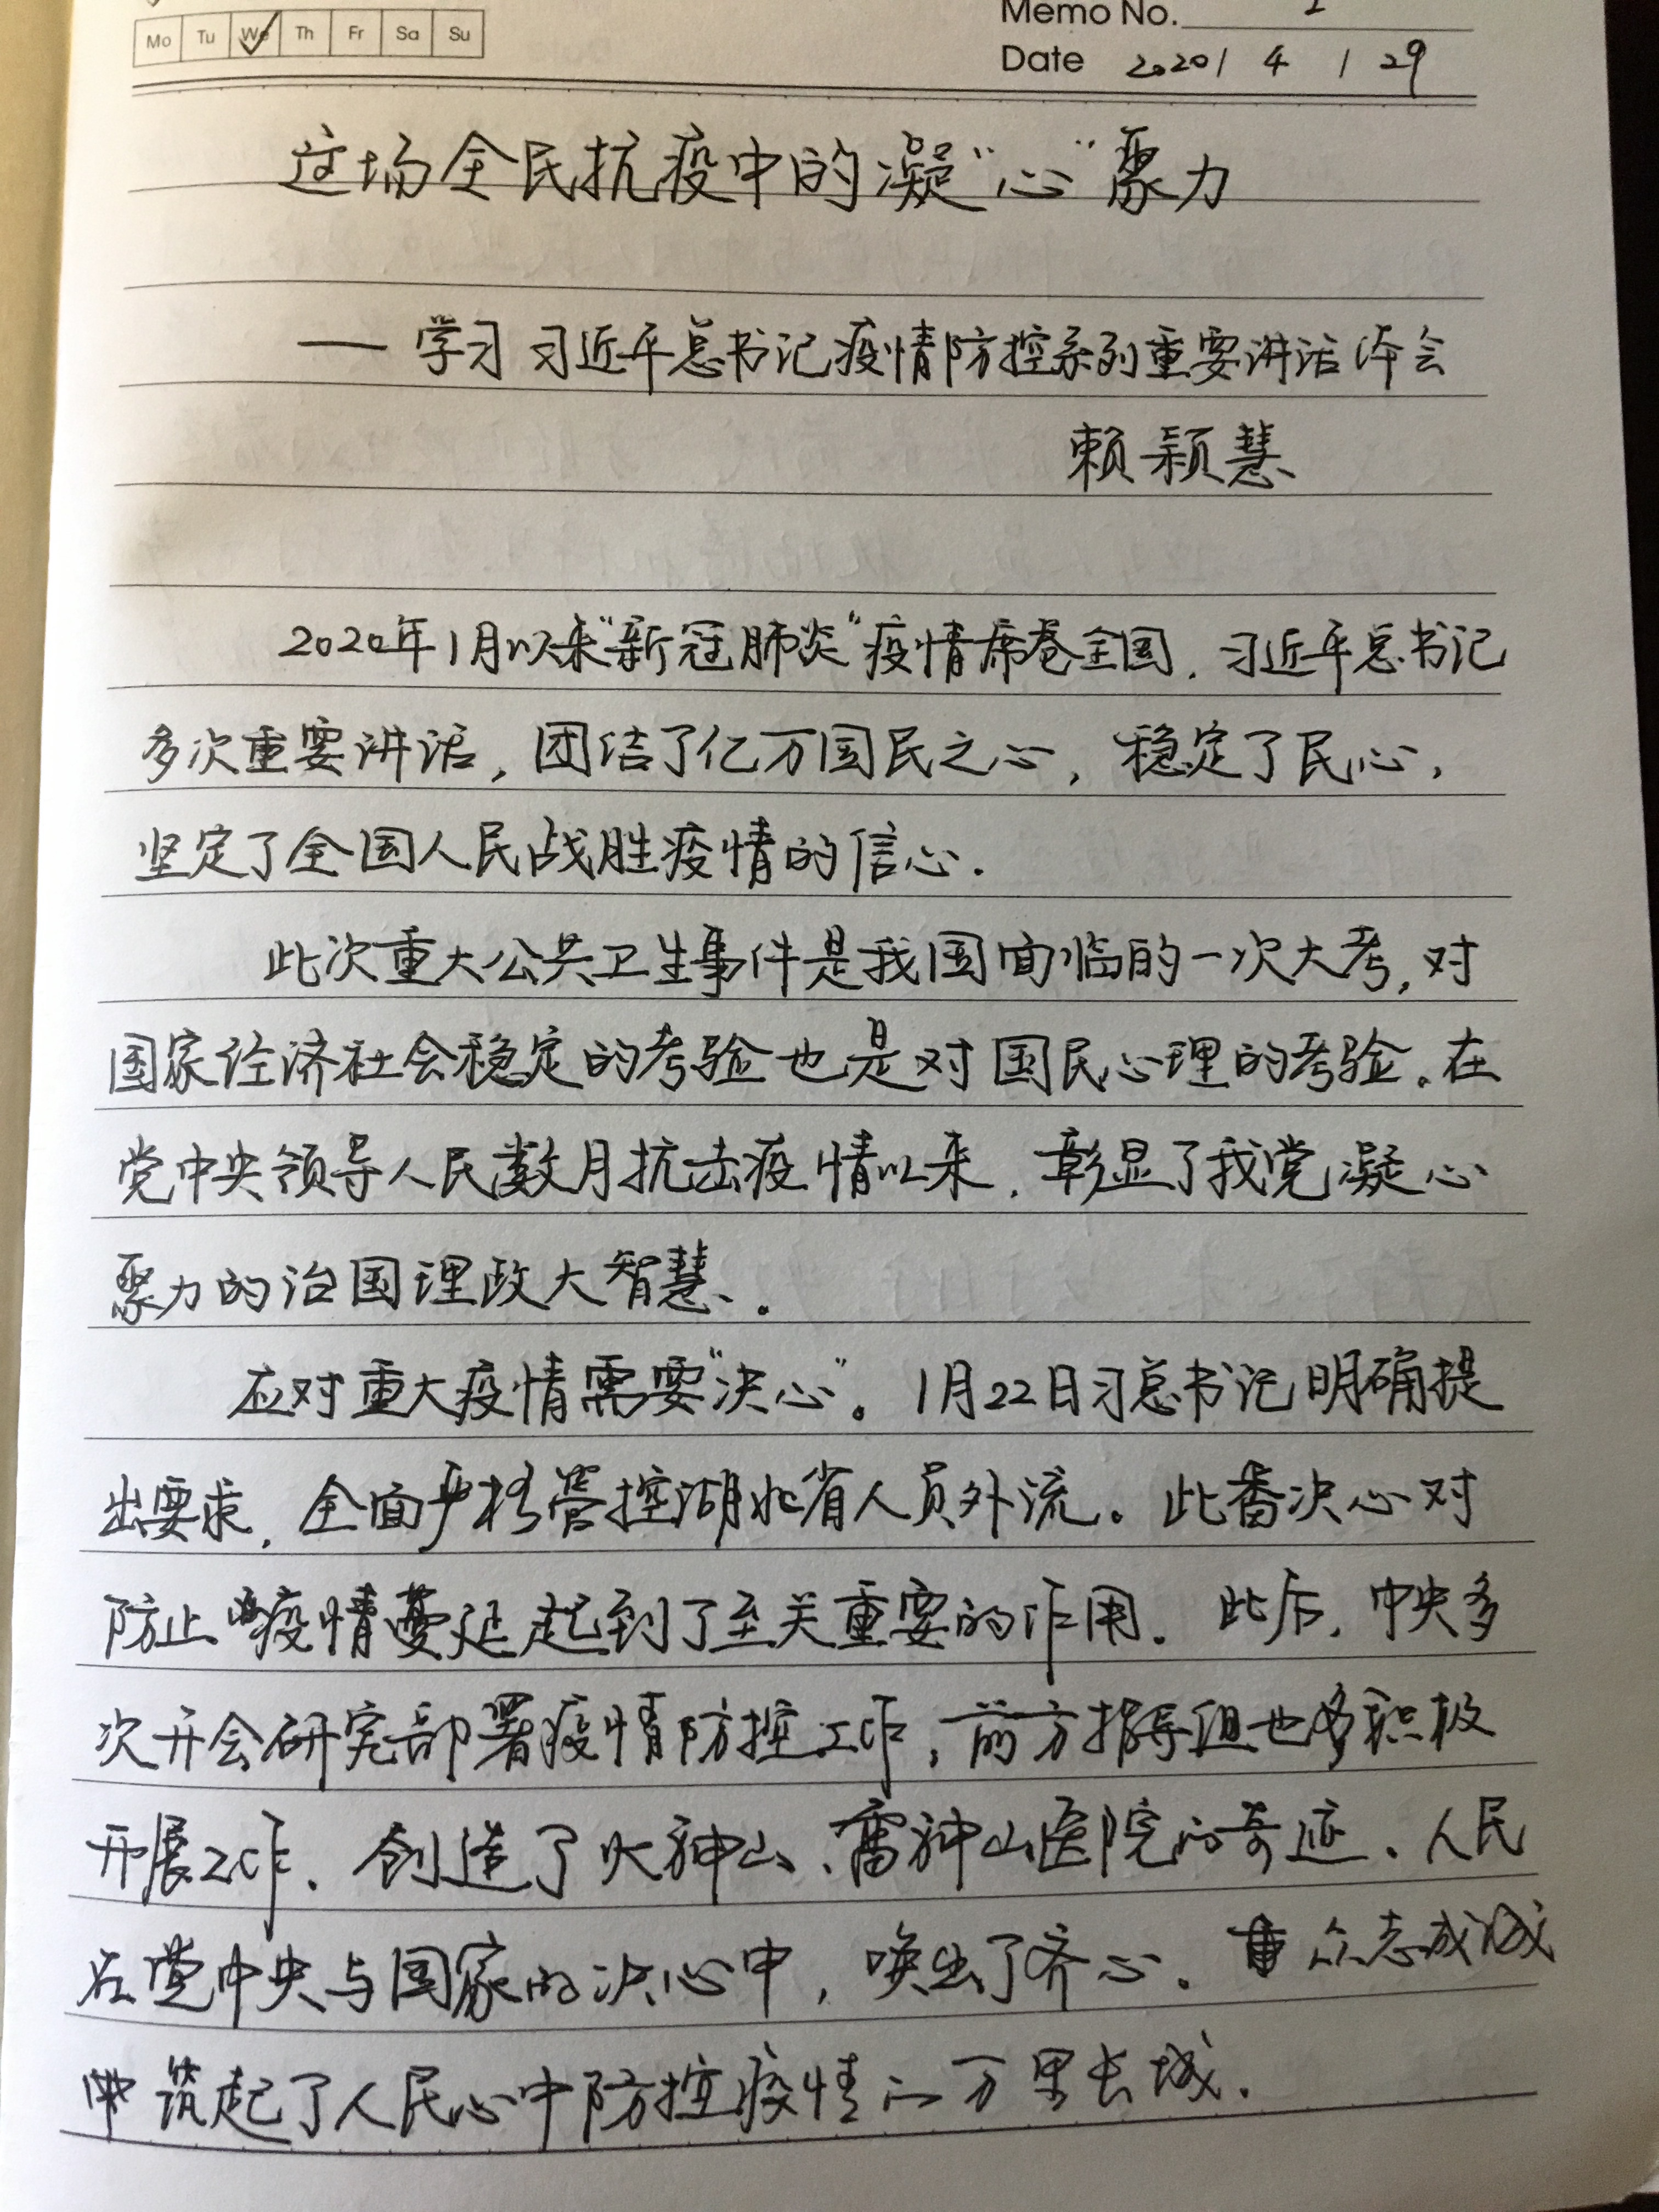 Mo Tu We Th Fr Sa Su
Memo No. 1
Date 2020 / 4 / 29
这场全民抗疫中的凝“心”聚力
——学习习近平总书记疫情防控系列重要讲话体会
赖颖慧
2020年1月以来“新冠肺炎”疫情席卷全国，习近平总书记
多次重要讲话，团结了亿万国民之心，稳定了民心，
坚定了全国人民战胜疫情的信心.
此次重大公共卫生事件是我国面临的一次大考，对
国家经济社会稳定的考验也是对国民心理的考验。在
党中央领导人民数月抗击疫情以来，彰显了我党凝心
聚力的治国理政大智慧。
应对重大疫情需要“决心”。1月22日习总书记明确提
出要求，全面严格管控湖北省人员外流。此番决心对
防止疫情蔓延起到了至关重要的作用. 此后，中央多
次开会研究部署疫情防控工作，前方指导组也积极
开展工作. 创造了火神山、雷神山医院的奇迹. 人民
在党中央与国家的决心中，唤出了齐心. 众志成城
筑起了人民心中防控疫情的万里长城.